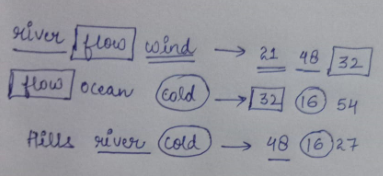 river flow wind → 21 48 32
flow ocean cold → 32 16 54
Hills river cold → 48 16 27